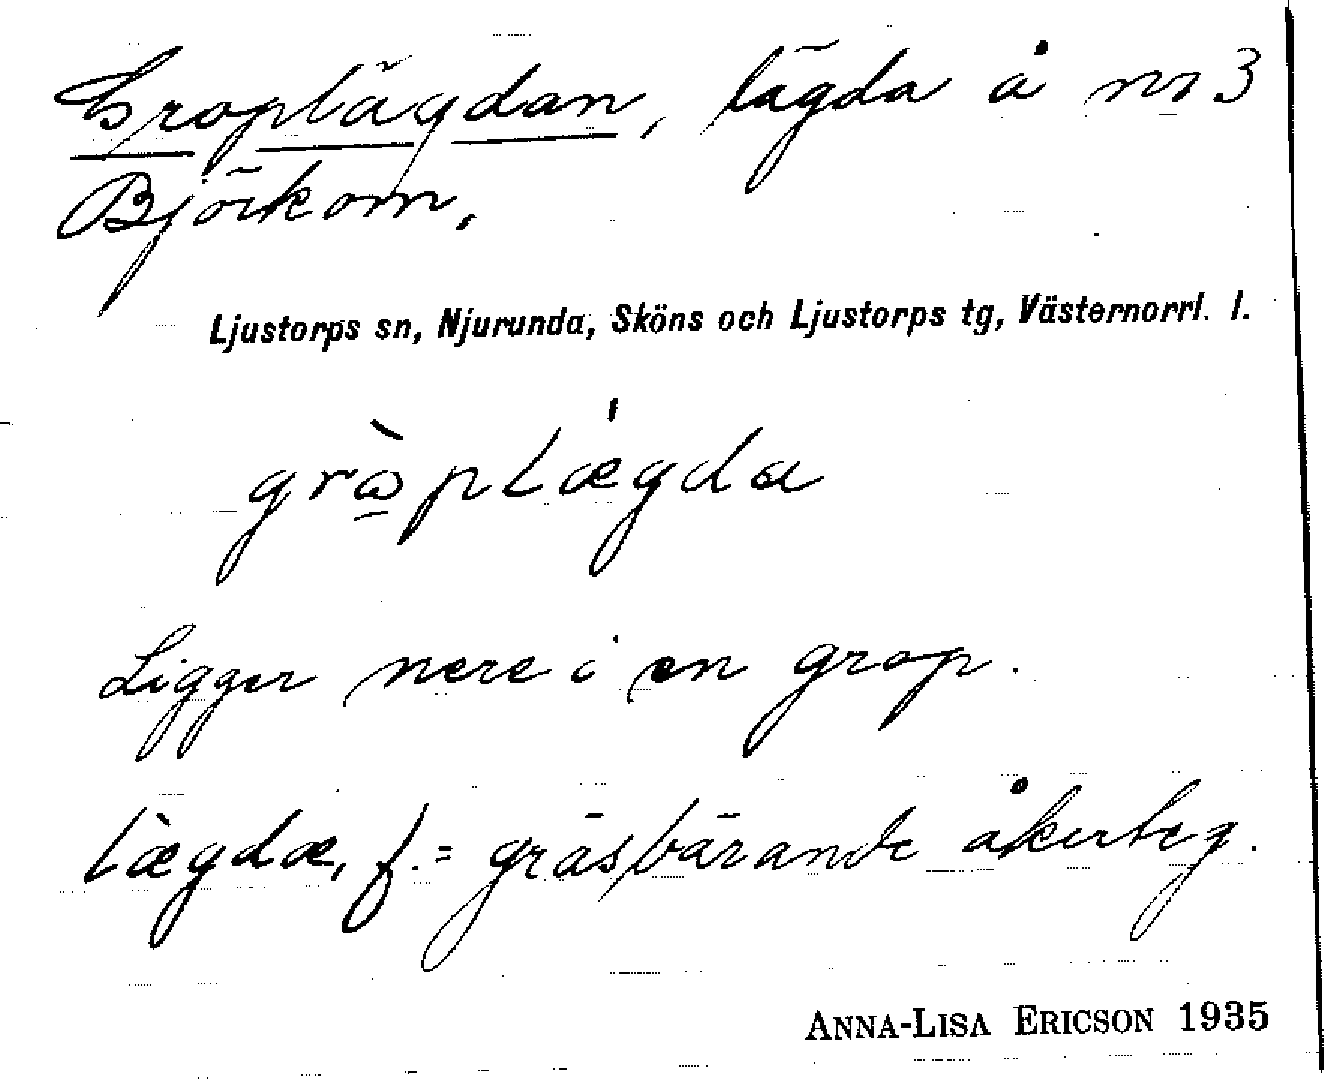 Groplägdan, lägda å nr 3
Björkom,
Ljustorps sn, Njurunda, Sköns och Ljustorps tg, Västernorrl. l.
grò̱plǽgda
Ligger nere i en grop.
lægdæ, f. = gräsbärande åkerteg.
ANNA-LISA ERICSON 1935